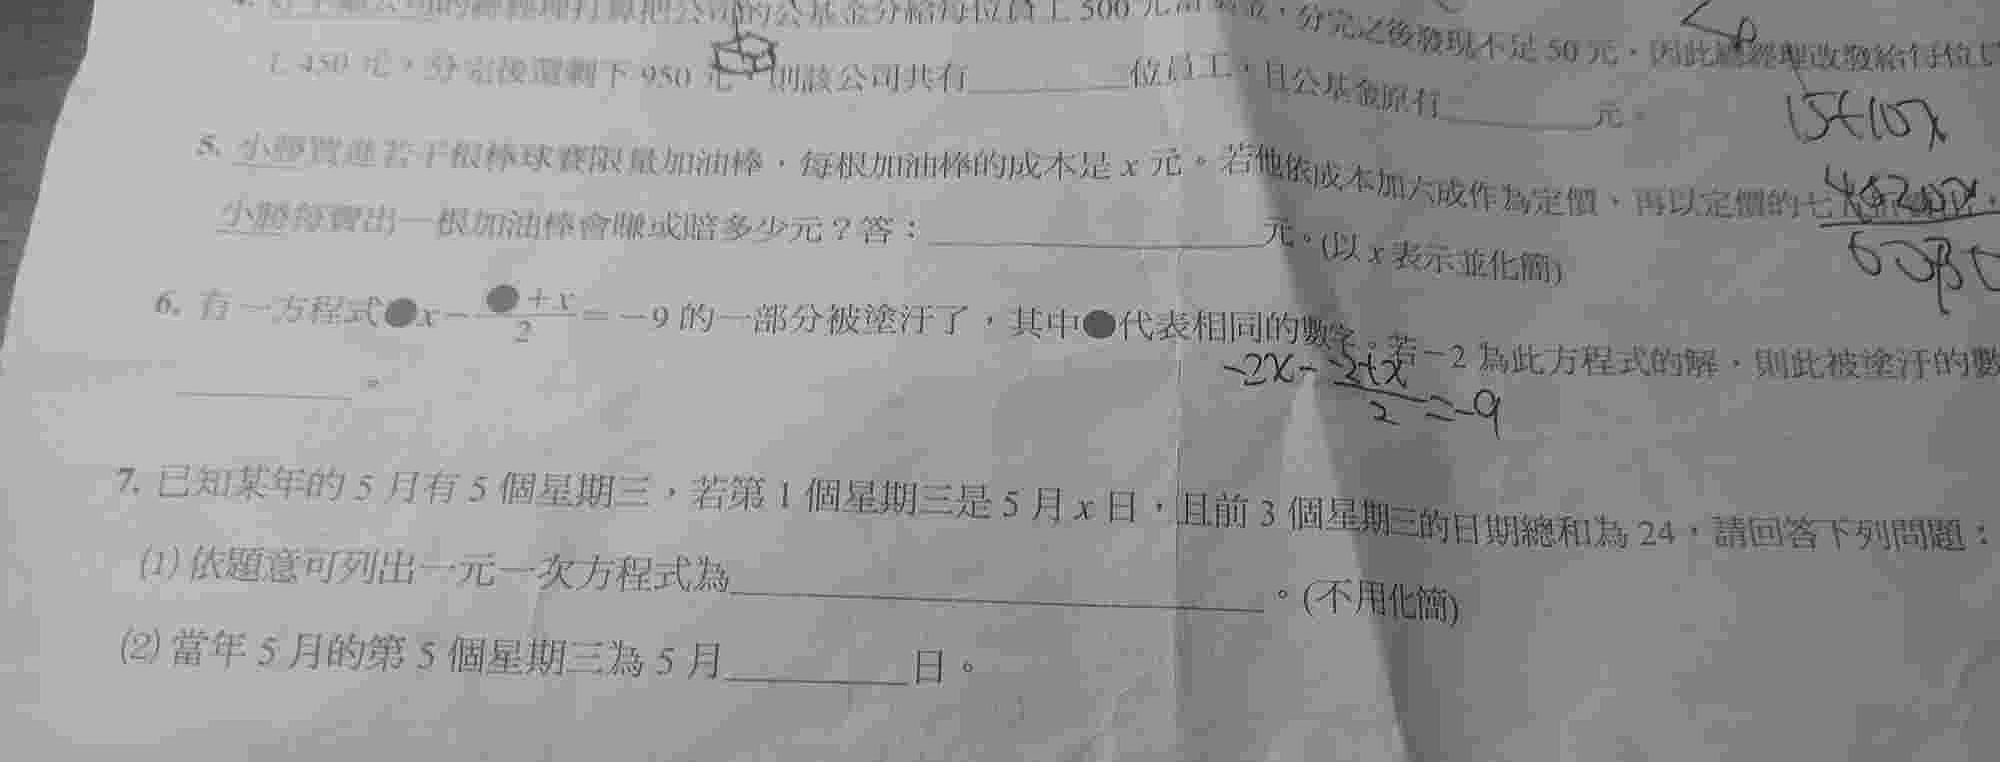 公基金分給每位員工 500 元
分完之後發現不足 50 元,因此總經理改發給每位員
工 450 元,分完後還剩下 950 元,則該公司共有________位員工,且公基金原有________元。
5. 小勝買進若干根棒球賽限量加油棒,每根加油棒的成本是 x 元。若他依成本加六成作為定價,再以定價的七
小勝每賣出一根加油棒會賺或賠多少元?答:________元。(以 x 表示並化簡)
6. 有一方程式●x-(●+x)/2=-9 的一部分被塗汙了,其中●代表相同的數字。若-2 為此方程式的解,則此被塗汙的數
________。
-2x-(-2+x)/2=-9
7. 已知某年的 5 月有 5 個星期三,若第 1 個星期三是 5 月 x 日,且前 3 個星期三的日期總和為 24,請回答下列問題:
(1) 依題意可列出一元一次方程式為________。(不用化簡)
(2) 當年 5 月的第 5 個星期三為 5 月________日。